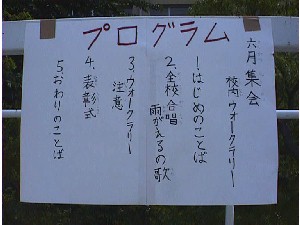 プログラム
六月集会
校内ウォークラリー
1.はじめのことば
2.全校合唱
雨がえるの歌
3.ウォークラリー
注意
4.表彰式
5.おわりのことば